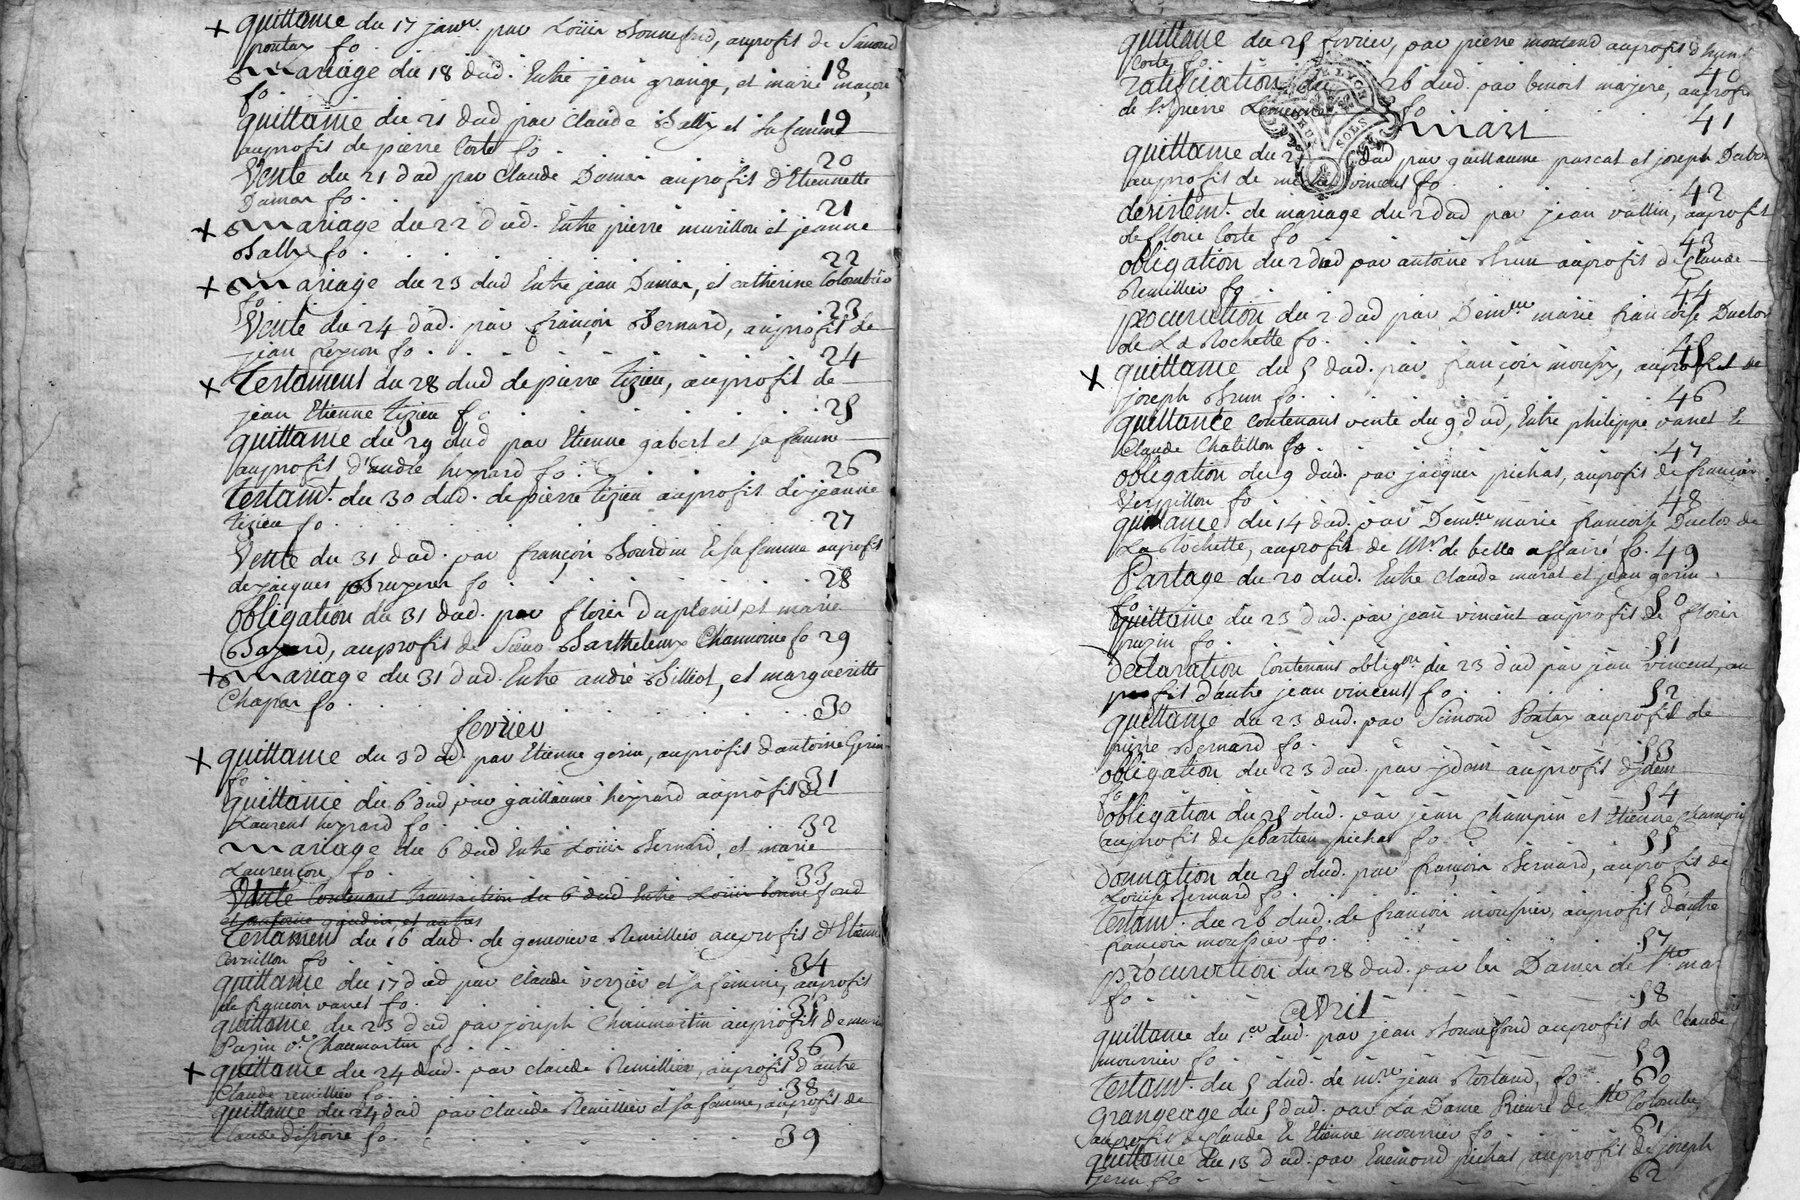 quittance du 17 janv.r par Louis Bonnefond, auprofit de Simond
pontax fo 18
mariage du 18 dud. Entre jean grange, et marie maçon
fo. 19
quittance du 21 dud par Claude Bally et sa femme
auprofit de pierre Corte fo. 20
Vente du 21 dud par Claude Damas auprofit d'Etiennette
Damas fo. 21
mariage du 22 dud. Entre pierre murillon et jeanne
Bally fo. 22
mariage du 23 dud Entre jean Damas, et catherine Colombier
fo 23
Vente du 24 dud. par françois Bernard, auprofit de
jean freyson fo. 24
Testament du 28 dud de pierre tizieu, auprofit de
jean Etienne tizieu fo 25
quittance du 29 dud par Etienne gabert et sa femme
auprofit d'andré heyrard fo. 26
testam.t du 30 dud. de pierre tizieu auprofit de jeanne
tizieu fo 27
Vente du 31 dud. par françois Bourdin Et sa femme auprofit
de jacques Bruyeres fo 28
Obligation du 31 dud. par floris duplanis et marie
Bayard, auprofit de Sieur Barthelemy Channoine fo 29
mariage du 31 dud. Entre andré Billiot, et margueritte
Chapas fo 30
fevrier
quittance du 3 dud. par Etienne gerin, auprofit d'antoine Gerin
fo 31
quittance du 6 dud par guillaume heyrard auprofit de
Laurent heyrard fo 32
mariage du 6 dud Entre Louis Bernard, et marie
Laurençon fo 33
Vente Contenant transaction du 6 dud Entre Louis bonnefond
et antoine gaudin, et autres
Testament du 16 dud. de genevieve Remillier auprofit d'Etienne
Cornillon fo 34
quittance du 17 dud par Claude verzier et sa femme, auprofit
de françois vanet fo. 35
quittance du 23 dud par joseph Chaumartin auprofit de marie
Pazin v.e Chaumartin fo 36
quittance du 24 dud. par claude Remillier, auprofit d'autre
Claude remillier fo. 38
quittance du 24 dud par Claude Remillier et sa femme, auprofit de
Claude fo 39
quittance du 25 fevrier, par pierre montend auprofit
Corte fo 40
ratification du 26 dud. par benoit mazere, auprofit
de s.r pierre fo 41
mars
quittance du dud par guillaume pascat et joseph
auprofit de vincent fo 42
desistem.t de mariage du 2 dud par jean vallin, auprofit
de florie Corte fo 43
obligation du 2 dud par antoine Brun auprofit de Claude
Remillier fo 44
procuration du 2 dud par Dem.lle marie françoise Duclos
de La Rochette fo. 45
quittance du 5 dud. par françois auprofit de
joseph Brun fo. 46
quittance Contenant vente du 9 dud, Entre philippe vanet Et
Claude Chatillon fo 47
obligation du 9 dud. par jacques pichat, auprofit de françois
Verpillon fo 48
quittance du 14 dud. par Dem.lle marie françoise Duclos de
La Rochette, auprofit de M.r de belle affaire fo. 49
Partage du 20 dud. Entre Claude marat et jean gerin
fo 50
quittance du 23 dud. par jean vincent auprofit de floris
pazin fo. 51
declaration Contenant oblig.on du 23 dud par jean vincent, au
profit d'autre jean vincent fo. 52
quittance du 23 dud. par Simond Pontax auprofit de
pierre Bernard fo. 53
obligation du 23 dud. par jdem auprofit d'jdem
fo 54
obligation du 25 dud. par jean Champin et Etienne Champin
auprofit de sebastien pichat fo 55
Donnation du 25 dud. par françois Bernard, auprofit de
Louise Bernard fo 56
testam.t du 26 dud. de françois moussier, auprofit d'autre
françois moussier fo. 57
procuration du 28 dud. par les Dames de
fo 58
avril
quittance du 1.er dud. par jean Bonnefond auprofit de Claude
mournier fo 59
testam.t du 5 dud. de m.re jean Rortand, fo 60
Grangeage du 5 dud. par La Dame Prieure de s.te Colombe
auprofit de Claude Et Etienne mournier fo 61
quittance du 13 dud. par Enemond pichat, auprofit de joseph
gerin fo 62